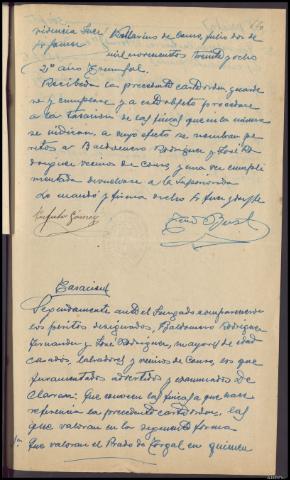 videncia Juez
Sr Januar
Ballarino de Cours, julio dos de
mil novecientos treinta y ocho
2º año Triunfal.
Recibida la precedente cartaorden guarde
se y cumplase y a este objeto procedase
a la tasación de las fincas que en la misma
se indican, a cuyo efecto se nombran pe
ritos a Baldomero Rodríguez y José Ro
dríguez vecinos de y una vez cumpli
mentada devuélvase a la Superioridad
Lo mandó y firma dicho Sr Juez doy fe
Tasación
Seguidamente ante el Juzgado comparecieron
los peritos designados, Baldomero Rodríguez
Fernandez y José Rodríguez, mayores de edad
casados, labradores y vecinos de los que
juramentados advertidos y examinados De
claran: Que conocen las fincas a que hace
referencia la precedente cartaorden, las
que valoran en la siguiente forma
Que valoran el Prado do Torgal en quinien